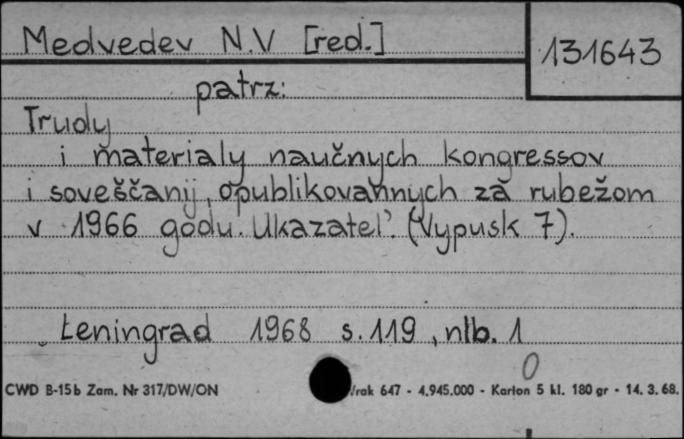 Medvedev N.V [red.]
131643
patrz:
Trudy
i materialy naučnych kongressov
i soveščanij, opublikovannych za rubežom
v 1966 godu. Ukazatel'. (Vypusk 7).
Leningrad 1968 s. 119, nlb. 1
0
CWD B-15b Zam. Nr 317/DW/ON /rak 647 - 4.945.000 - Karton 5 kl. 180 gr - 14. 3. 68.